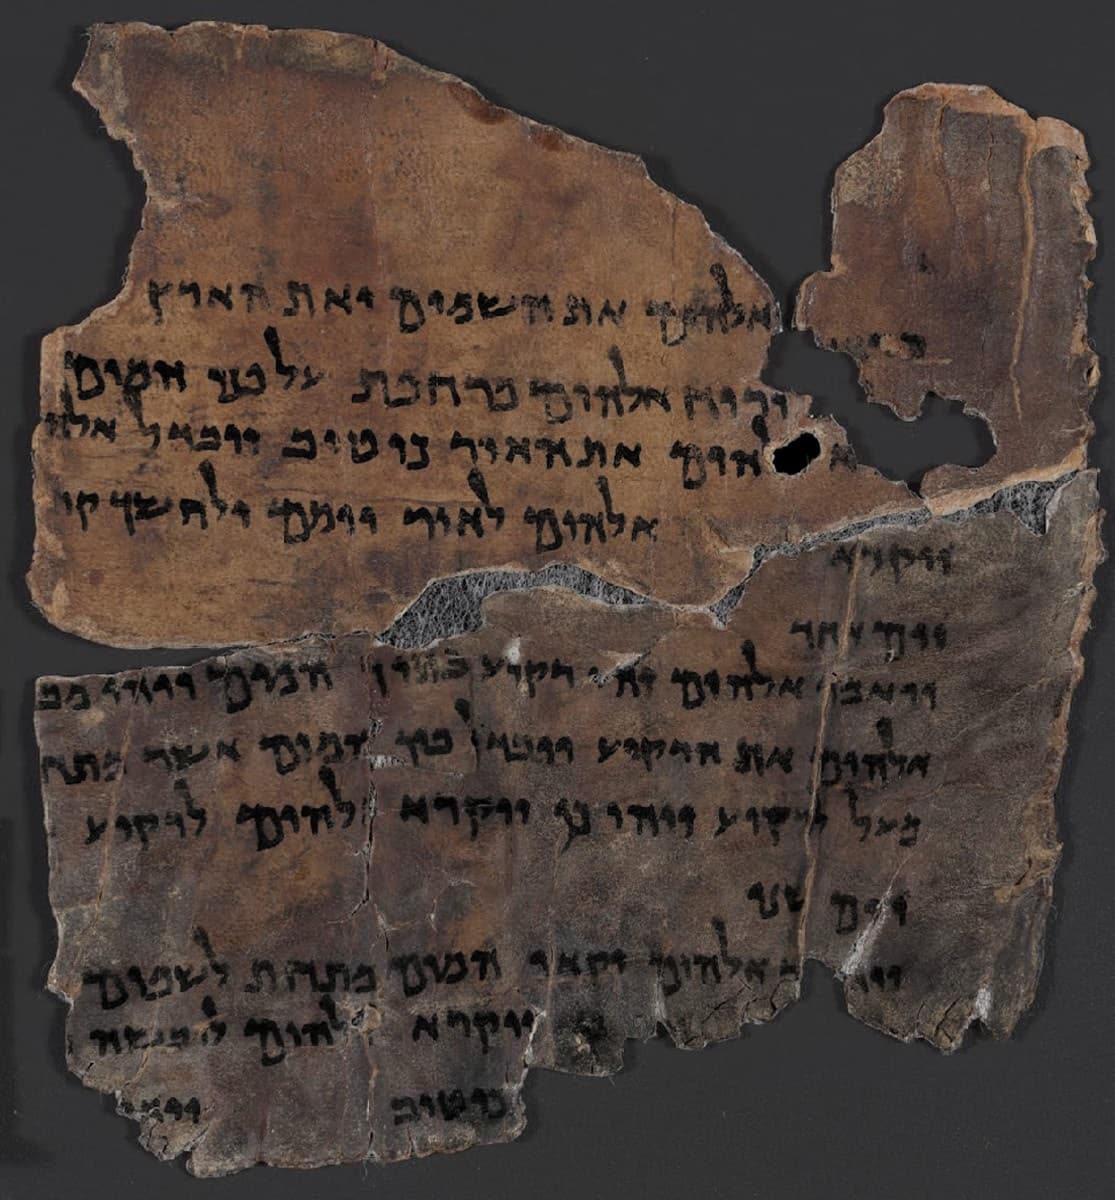 אלהים את השמים ואת הארץ
ורוח אלהים מרחפת על פני המים
אלהים את האור כי טוב ויבדל אלהי
ויקרא אלהים לאור יומם ולחשך קר
יום אחד
ויאמר אלהים יהי רקיע בתוך המים ויהי מב
אלהים את הרקיע ויבדל בין המים אשר מתח
מעל לרקיע ויהי כן ויקרא אלהים לרקיע
יום שני
ויאמר אלהים יקוו המים מתחת לשמים
ויקרא אלהים ליבשה
כי טוב ויאמ